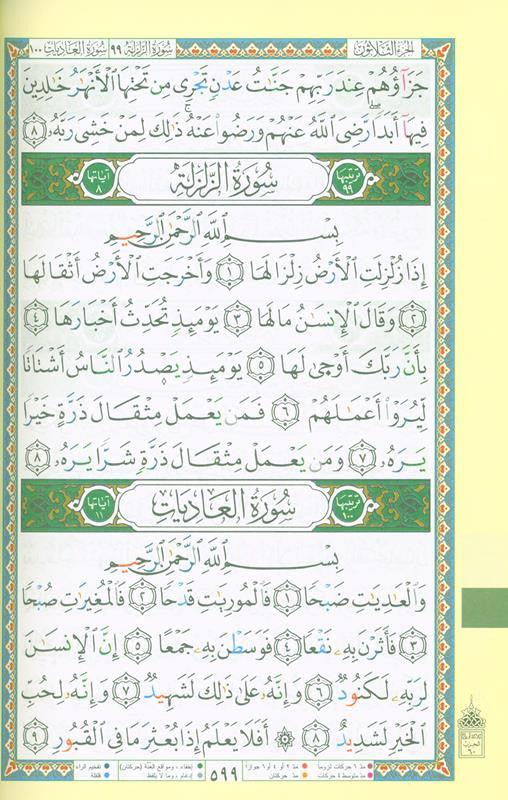 الجزء الثلاثون سورة الزلزلة ٩٩ سورة العاديات ١٠٠
جَزَآؤُهُمْ عِندَ رَبِّهِمْ جَنَّٰتُ عَدْنٍ تَجْرِى مِن تَحْتِهَا ٱلْأَنْهَٰرُ خَٰلِدِينَ
فِيهَآ أَبَدًا رَّضِىَ ٱللَّهُ عَنْهُمْ وَرَضُوا۟ عَنْهُ ذَٰلِكَ لِمَنْ خَشِىَ رَبَّهُۥ ٨
ترتيبها ٩٩ سُورَةُ الزَّلْزَلَةِ آياتها ٨
بِسْمِ ٱللَّهِ ٱلرَّحْمَٰنِ ٱلرَّحِيمِ
إِذَا زُلْزِلَتِ ٱلْأَرْضُ زِلْزَالَهَا ١ وَأَخْرَجَتِ ٱلْأَرْضُ أَثْقَالَهَا
٢ وَقَالَ ٱلْإِنسَٰنُ مَا لَهَا ٣ يَوْمَئِذٍ تُحَدِّثُ أَخْبَارَهَا ٤
بِأَنَّ رَبَّكَ أَوْحَىٰ لَهَا ٥ يَوْمَئِذٍ يَصْدُرُ ٱلنَّاسُ أَشْتَاتًا
لِّيُرَوْا۟ أَعْمَٰلَهُمْ ٦ فَمَن يَعْمَلْ مِثْقَالَ ذَرَّةٍ خَيْرًا
يَرَهُۥ ٧ وَمَن يَعْمَلْ مِثْقَالَ ذَرَّةٍ شَرًّا يَرَهُۥ ٨
ترتيبها ١٠٠ سُورَةُ العَادِيَاتِ آياتها ١١
بِسْمِ ٱللَّهِ ٱلرَّحْمَٰنِ ٱلرَّحِيمِ
وَٱلْعَٰدِيَٰتِ ضَبْحًا ١ فَٱلْمُورِيَٰتِ قَدْحًا ٢ فَٱلْمُغِيرَٰتِ صُبْحًا
٣ فَأَثَرْنَ بِهِۦ نَقْعًا ٤ فَوَسَطْنَ بِهِۦ جَمْعًا ٥ إِنَّ ٱلْإِنسَٰنَ
لِرَبِّهِۦ لَكَنُودٌ ٦ وَإِنَّهُۥ عَلَىٰ ذَٰلِكَ لَشَهِيدٌ ٧ وَإِنَّهُۥ لِحُبِّ
ٱلْخَيْرِ لَشَدِيدٌ ٨ ۞ أَفَلَا يَعْلَمُ إِذَا بُعْثِرَ مَا فِى ٱلْقُبُورِ ٩
الحزب ٦٠
مدّ ٦ حركات لزوماً مدّ ٢ أو ٤ أو ٦ جوازاً إخفاء، ومواقع الغنّة (حركتان) تفخيم الراء
مدّ حركتان إدغام، وما لا يلفظ قلقلة
٥٩٩